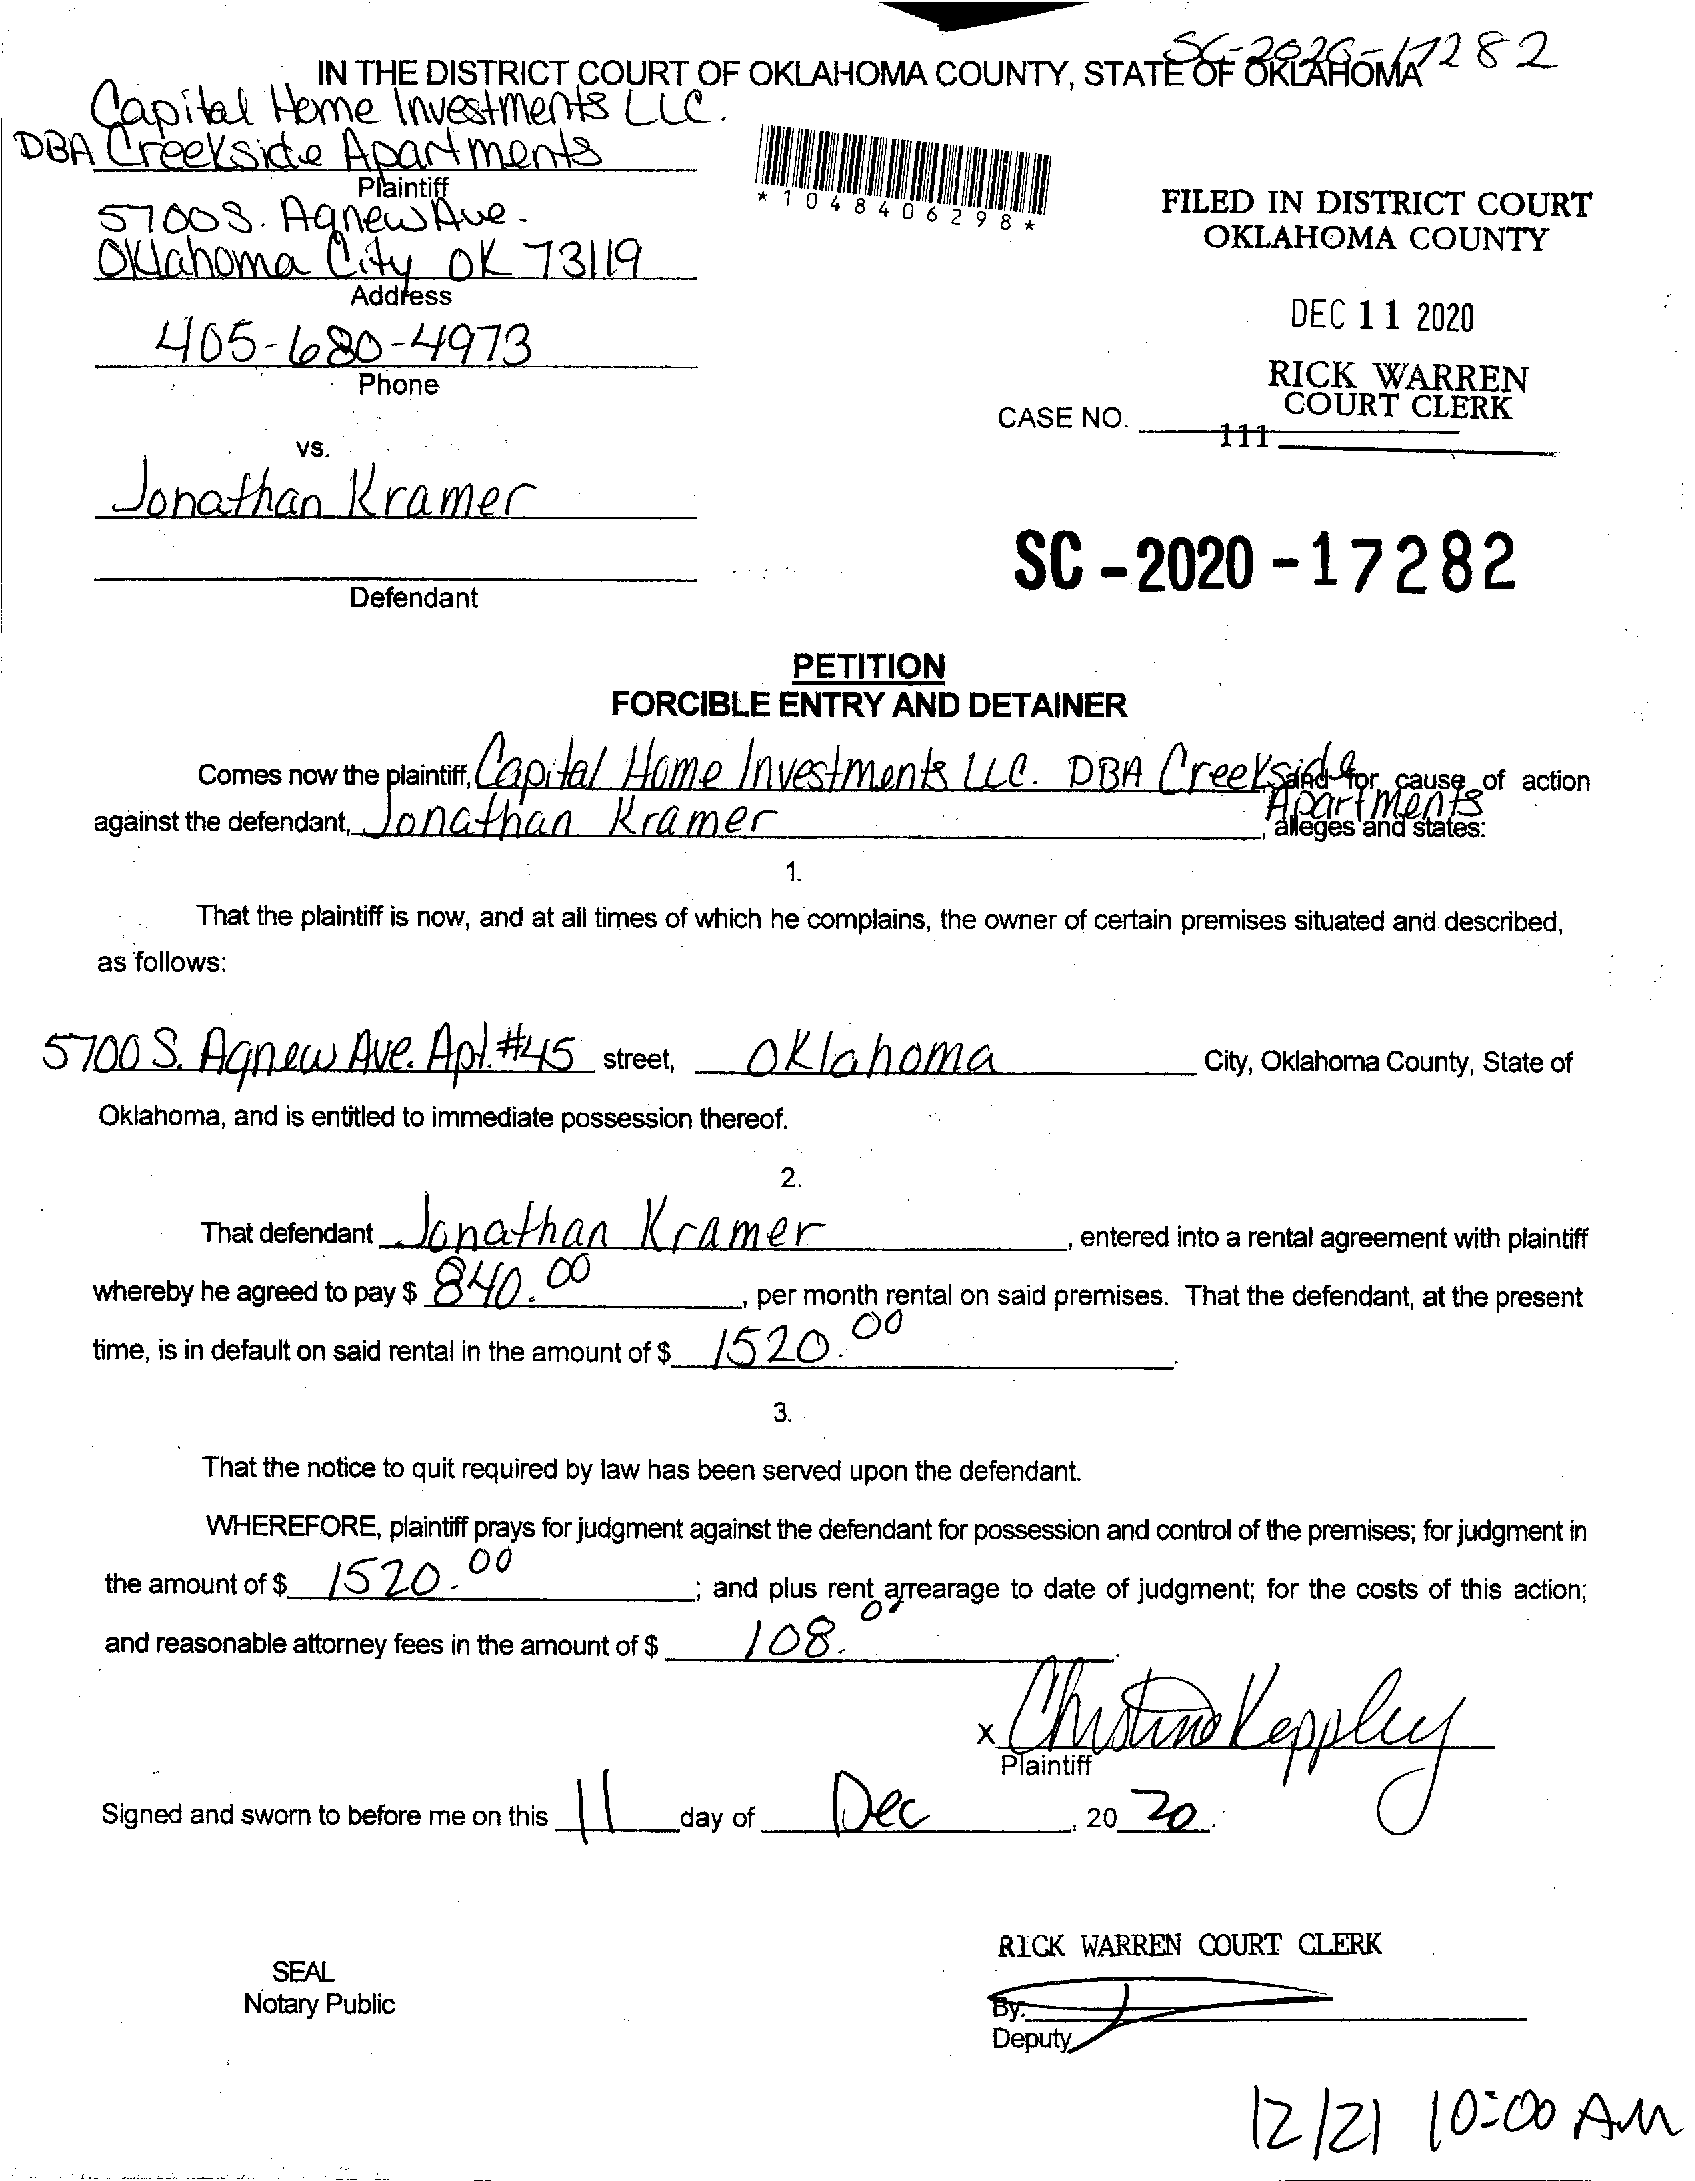 SC-2020-17282
IN THE DISTRICT COURT OF OKLAHOMA COUNTY, STATE OF OKLAHOMA
Capital Home Investments LLC.
DBA Creekside Apartments
Plaintiff
5700 S. Agnew Ave.
Oklahoma City OK 73119
Address
405-680-4973
Phone
*1048406298*
FILED IN DISTRICT COURT
OKLAHOMA COUNTY
DEC 11 2020
RICK WARREN
COURT CLERK
CASE NO.
111
vs.
Jonathan Kramer
Defendant
SC-2020-17282
PETITION
FORCIBLE ENTRY AND DETAINER
Comes now the plaintiff, Capital Home Investments LLC. DBA Creekside Apartments and for cause of action
against the defendant, Jonathan Kramer, alleges and states:
1.
That the plaintiff is now, and at all times of which he complains, the owner of certain premises situated and described,
as follows:
5700 S. Agnew Ave. Apt. #45 street, Oklahoma City, Oklahoma County, State of
Oklahoma, and is entitled to immediate possession thereof.
2.
That defendant Jonathan Kramer, entered into a rental agreement with plaintiff
whereby he agreed to pay $ 840.00, per month rental on said premises. That the defendant, at the present
time, is in default on said rental in the amount of $ 1520.00.
3.
That the notice to quit required by law has been served upon the defendant.
WHEREFORE, plaintiff prays for judgment against the defendant for possession and control of the premises; for judgment in
the amount of $ 1520.00; and plus rent arrearage to date of judgment; for the costs of this action;
and reasonable attorney fees in the amount of $ 108.00.
x Christina Keppley
Plaintiff
Signed and sworn to before me on this 11 day of Dec, 2020.
SEAL
Notary Public
RICK WARREN COURT CLERK
By:
Deputy
12/21 10:00 AM